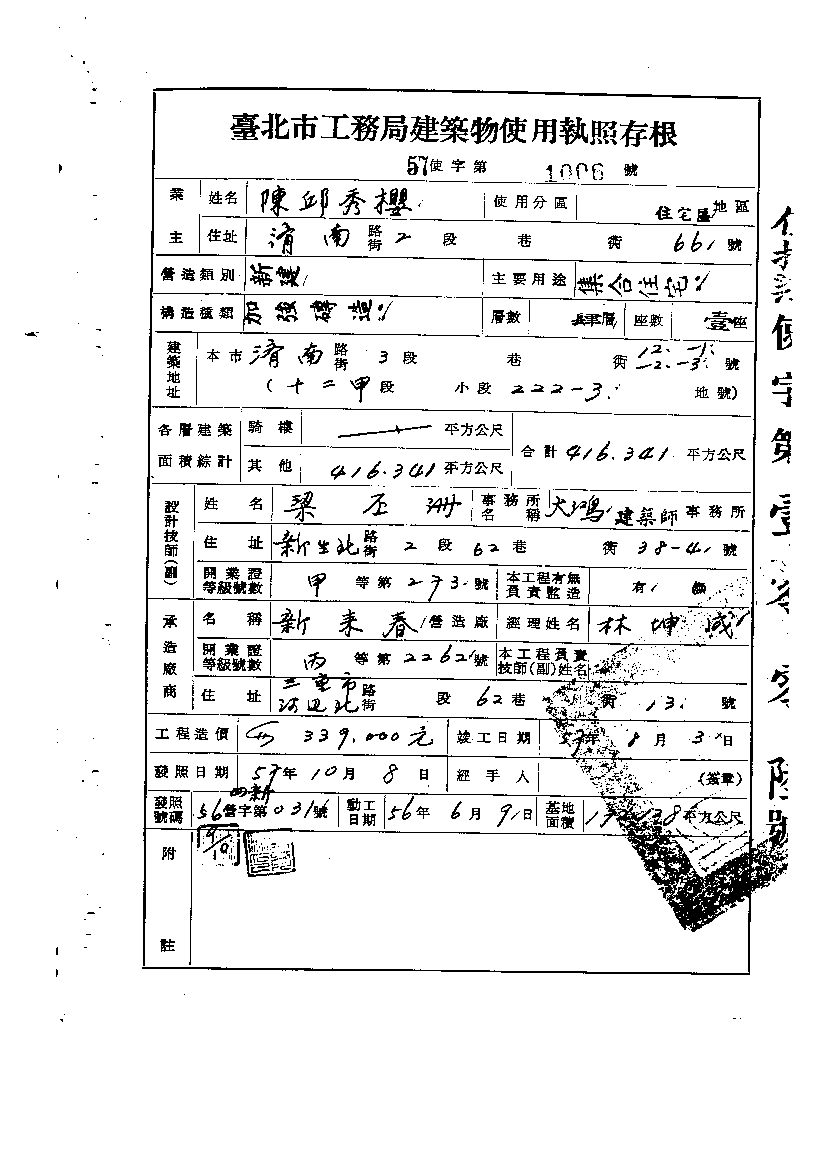 臺北市工務局建築物使用執照存根
57使字第 1006 號
業主 姓名 陳邱秀櫻 使用分區 住宅區 地區
住址 濟南 路街 2 段 巷 衖 66 號
營造類別 新建 主要用途 集合住宅
構造種類 加強磚造 層數 肆層 座數 壹座
建築地址 本市 濟南 路街 3 段 巷 衖 12.-1. -2.-3. 號
(十二甲段 小段 222-3 地號)
各層建築面積綜計 騎樓 平方公尺 合計 416.341 平方公尺
其他 416.341 平方公尺
設計技師(副) 姓名 梁 事務所名稱 大鴻建築師事務所
住址 新生北 路街 2 段 62 巷 衖 38-4 號
開業證等級號數 甲 等第 273 號 本工程有無負責監造 有 無
承造廠商 名稱 新來春 營造廠 經理姓名 林坤咸
開業證等級號數 丙 等第 2262 號 本工程負責技師(副)姓名
住址 三重市河邊北 路街 段 62 巷 衖 13 號
工程造價 339,000元 竣工日期 57年 8 月 3 日
發照日期 57年 10 月 8 日 經手人 (簽章)
發照號碼 56營字第0316號 動工日期 56年 6 月 9 日 基地面積 平方公尺
附註
使字第壹零零陸號